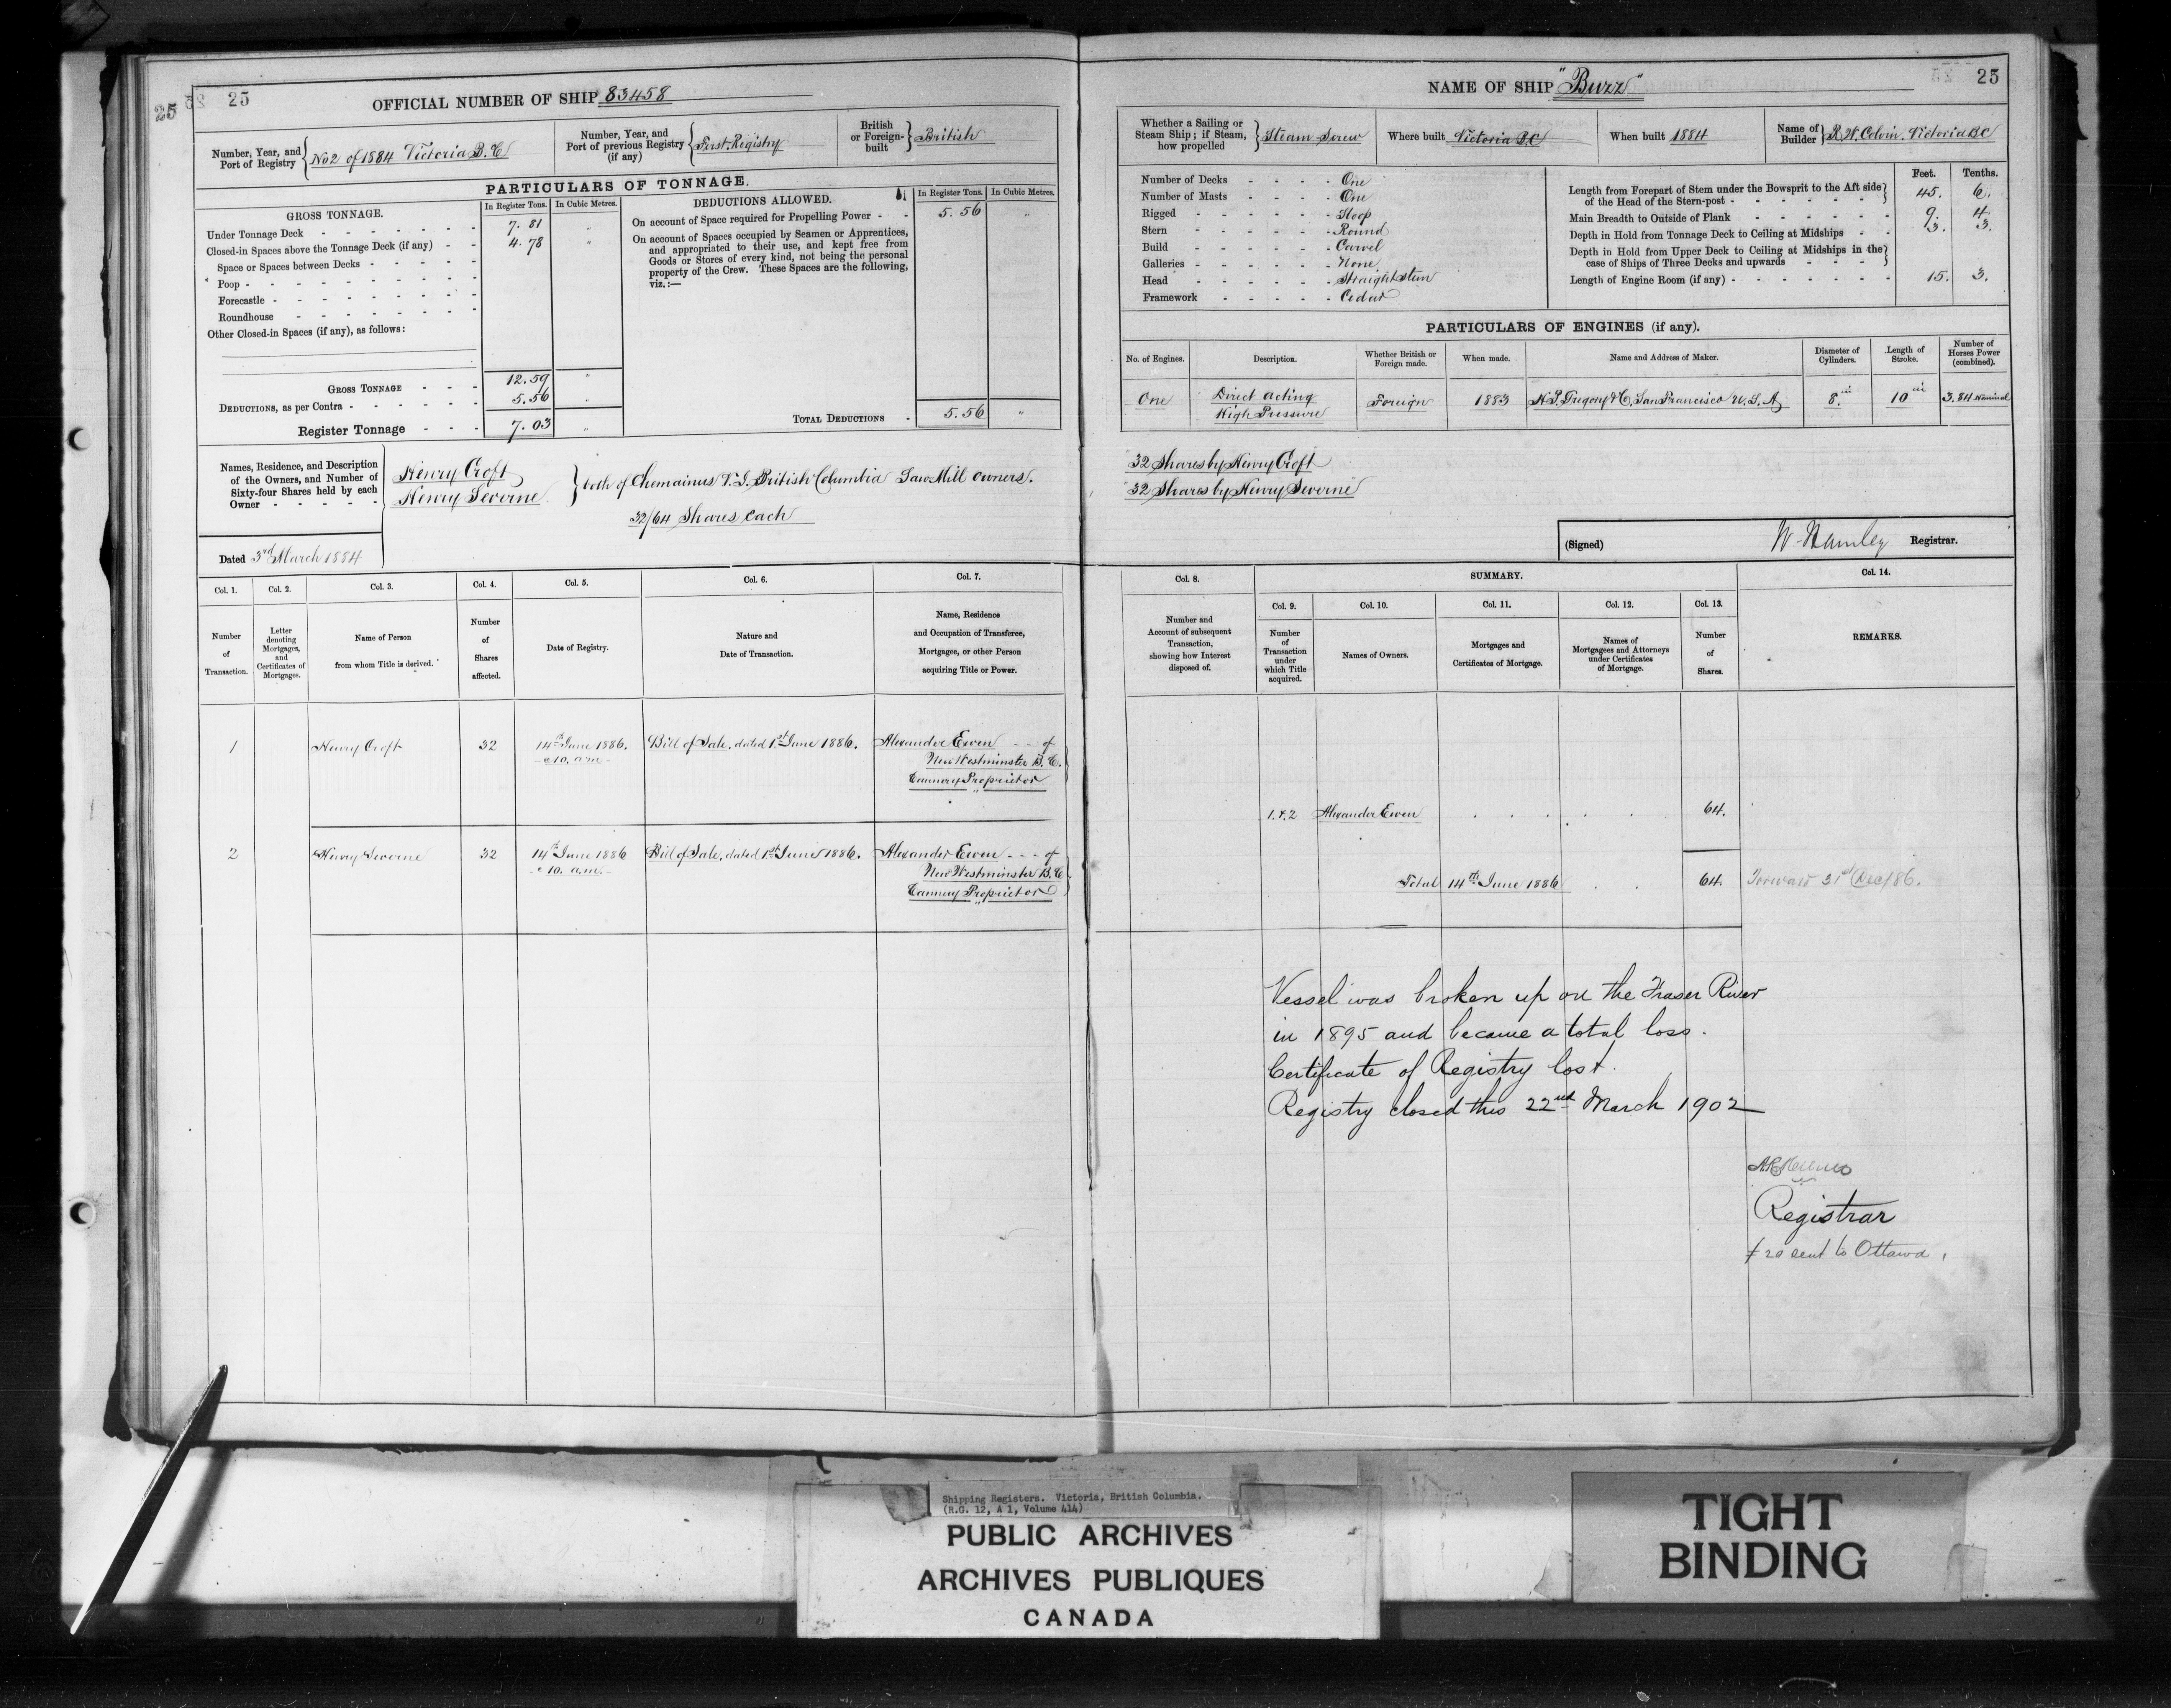 25
25
OFFICIAL NUMBER OF SHIP 83458
Number, Year, and Port of Registry } No 2 of 1884 Victoria B.C
Number, Year, and Port of previous Registry (if any) { First Registry
British or Foreign-built } British
PARTICULARS OF TONNAGE.
GROSS TONNAGE.
In Register Tons.
In Cubic Metres.
Under Tonnage Deck - - - 7. 81 "
Closed-in Spaces above the Tonnage Deck (if any) - - 4. 78 "
Space or Spaces between Decks - - -
Poop - - -
Forecastle - - -
Roundhouse - - -
Other Closed-in Spaces (if any), as follows:
GROSS TONNAGE - - - 12. 59 "
DEDUCTIONS, as per Contra - - - 5. 56 "
Register Tonnage - - - 7. 03 "
DEDUCTIONS ALLOWED.
In Register Tons.
In Cubic Metres.
On account of Space required for Propelling Power - - 5. 56 "
On account of Spaces occupied by Seamen or Apprentices,
and appropriated to their use, and kept free from
Goods or Stores of every kind, not being the personal
property of the Crew. These Spaces are the following,
viz.:—
TOTAL DEDUCTIONS - 5. 56 "
Names, Residence, and Description
of the Owners, and Number of
Sixty-four Shares held by each
Owner - - -
Henry Croft
Henry Severne
} both of Chemainus V. I. British Columbia Saw Mill owners.
32/64 Shares each
Dated 3rd March 1884
Col. 1.
Number
of
Transaction.
Col. 2.
Letter
denoting
Mortgages,
and
Certificates of
Mortgages.
Col. 3.
Name of Person
from whom Title is derived.
Col. 4.
Number
of
Shares
affected.
Col. 5.
Date of Registry.
Col. 6.
Nature and
Date of Transaction.
Col. 7.
Name, Residence
and Occupation of Transferee,
Mortgagee, or other Person
acquiring Title or Power.
1 Henry Croft 32 14th June 1886. Bill of Sale, dated 1st June 1886. Alexander Ewen - - of
@ 10. a.m. New Westminster B. C.
Cannery Proprietor
2 Henry Severne 32 14th June 1886 Bill of Sale, dated 1st June 1886. Alexander Ewen - - - of
@ 10. a.m. New Westminster B. C
Cannery Proprietor
NAME OF SHIP "Buzz"
25
Whether a Sailing or
Steam Ship; if Steam,
how propelled } Steam Screw
Where built Victoria BC
When built 1884
Name of Builder } R. W. Colvin. Victoria BC
Number of Decks - - - - One
Number of Masts - - - - One
Rigged - - - - Sloop
Stern - - - - Round
Build - - - - Carvel
Galleries - - - - None
Head - - - - Straight Stem
Framework - - - - Cedar
Feet. Tenths.
Length from Forepart of Stem under the Bowsprit to the Aft side
of the Head of the Stern-post - - - } 45. 6.
Main Breadth to Outside of Plank - - - 9. 4.
Depth in Hold from Tonnage Deck to Ceiling at Midships - - 3. 3.
Depth in Hold from Upper Deck to Ceiling at Midships in the
case of Ships of Three Decks and upwards - - - }
Length of Engine Room (if any) - - - 15. 3.
PARTICULARS OF ENGINES (if any).
No. of Engines.
Description.
Whether British or
Foreign made.
When made.
Name and Address of Maker.
Diameter of
Cylinders.
Length of
Stroke.
Number of
Horses Power
(combined).
One Direct acting High Pressure Foreign 1883 H. P. Gregory & Co, San Francisco U. S. A. 8. in 10 in 3.84 Nominal
32 Shares by Henry Croft
32 Shares by Henry Severne
(Signed) W Hamley Registrar.
Col. 8.
Number and
Account of subsequent
Transaction,
showing how Interest
disposed of.
SUMMARY.
Col. 9.
Number
of
Transaction
under
which Title
acquired.
Col. 10.
Names of Owners.
Col. 11.
Mortgages and
Certificates of Mortgage.
Col. 12.
Names of
Mortgagees and Attorneys
under Certificates
of Mortgage.
Col. 13.
Number
of
Shares.
Col. 14.
REMARKS.
1. & 2 Alexander Ewen . . . . 64.
Total 14th June 1886 . . 64. Forward 31st Dec/86.
Vessel was broken up on the Fraser River
in 1895 and became a total loss.
Certificate of Registry lost.
Registry closed this 22nd March 1902
Registrar
20 sent to Ottawa
Shipping Registers. Victoria, British Columbia.
(R.G. 12, A 1, Volume 414)
PUBLIC ARCHIVES
ARCHIVES PUBLIQUES
CANADA
TIGHT
BINDING